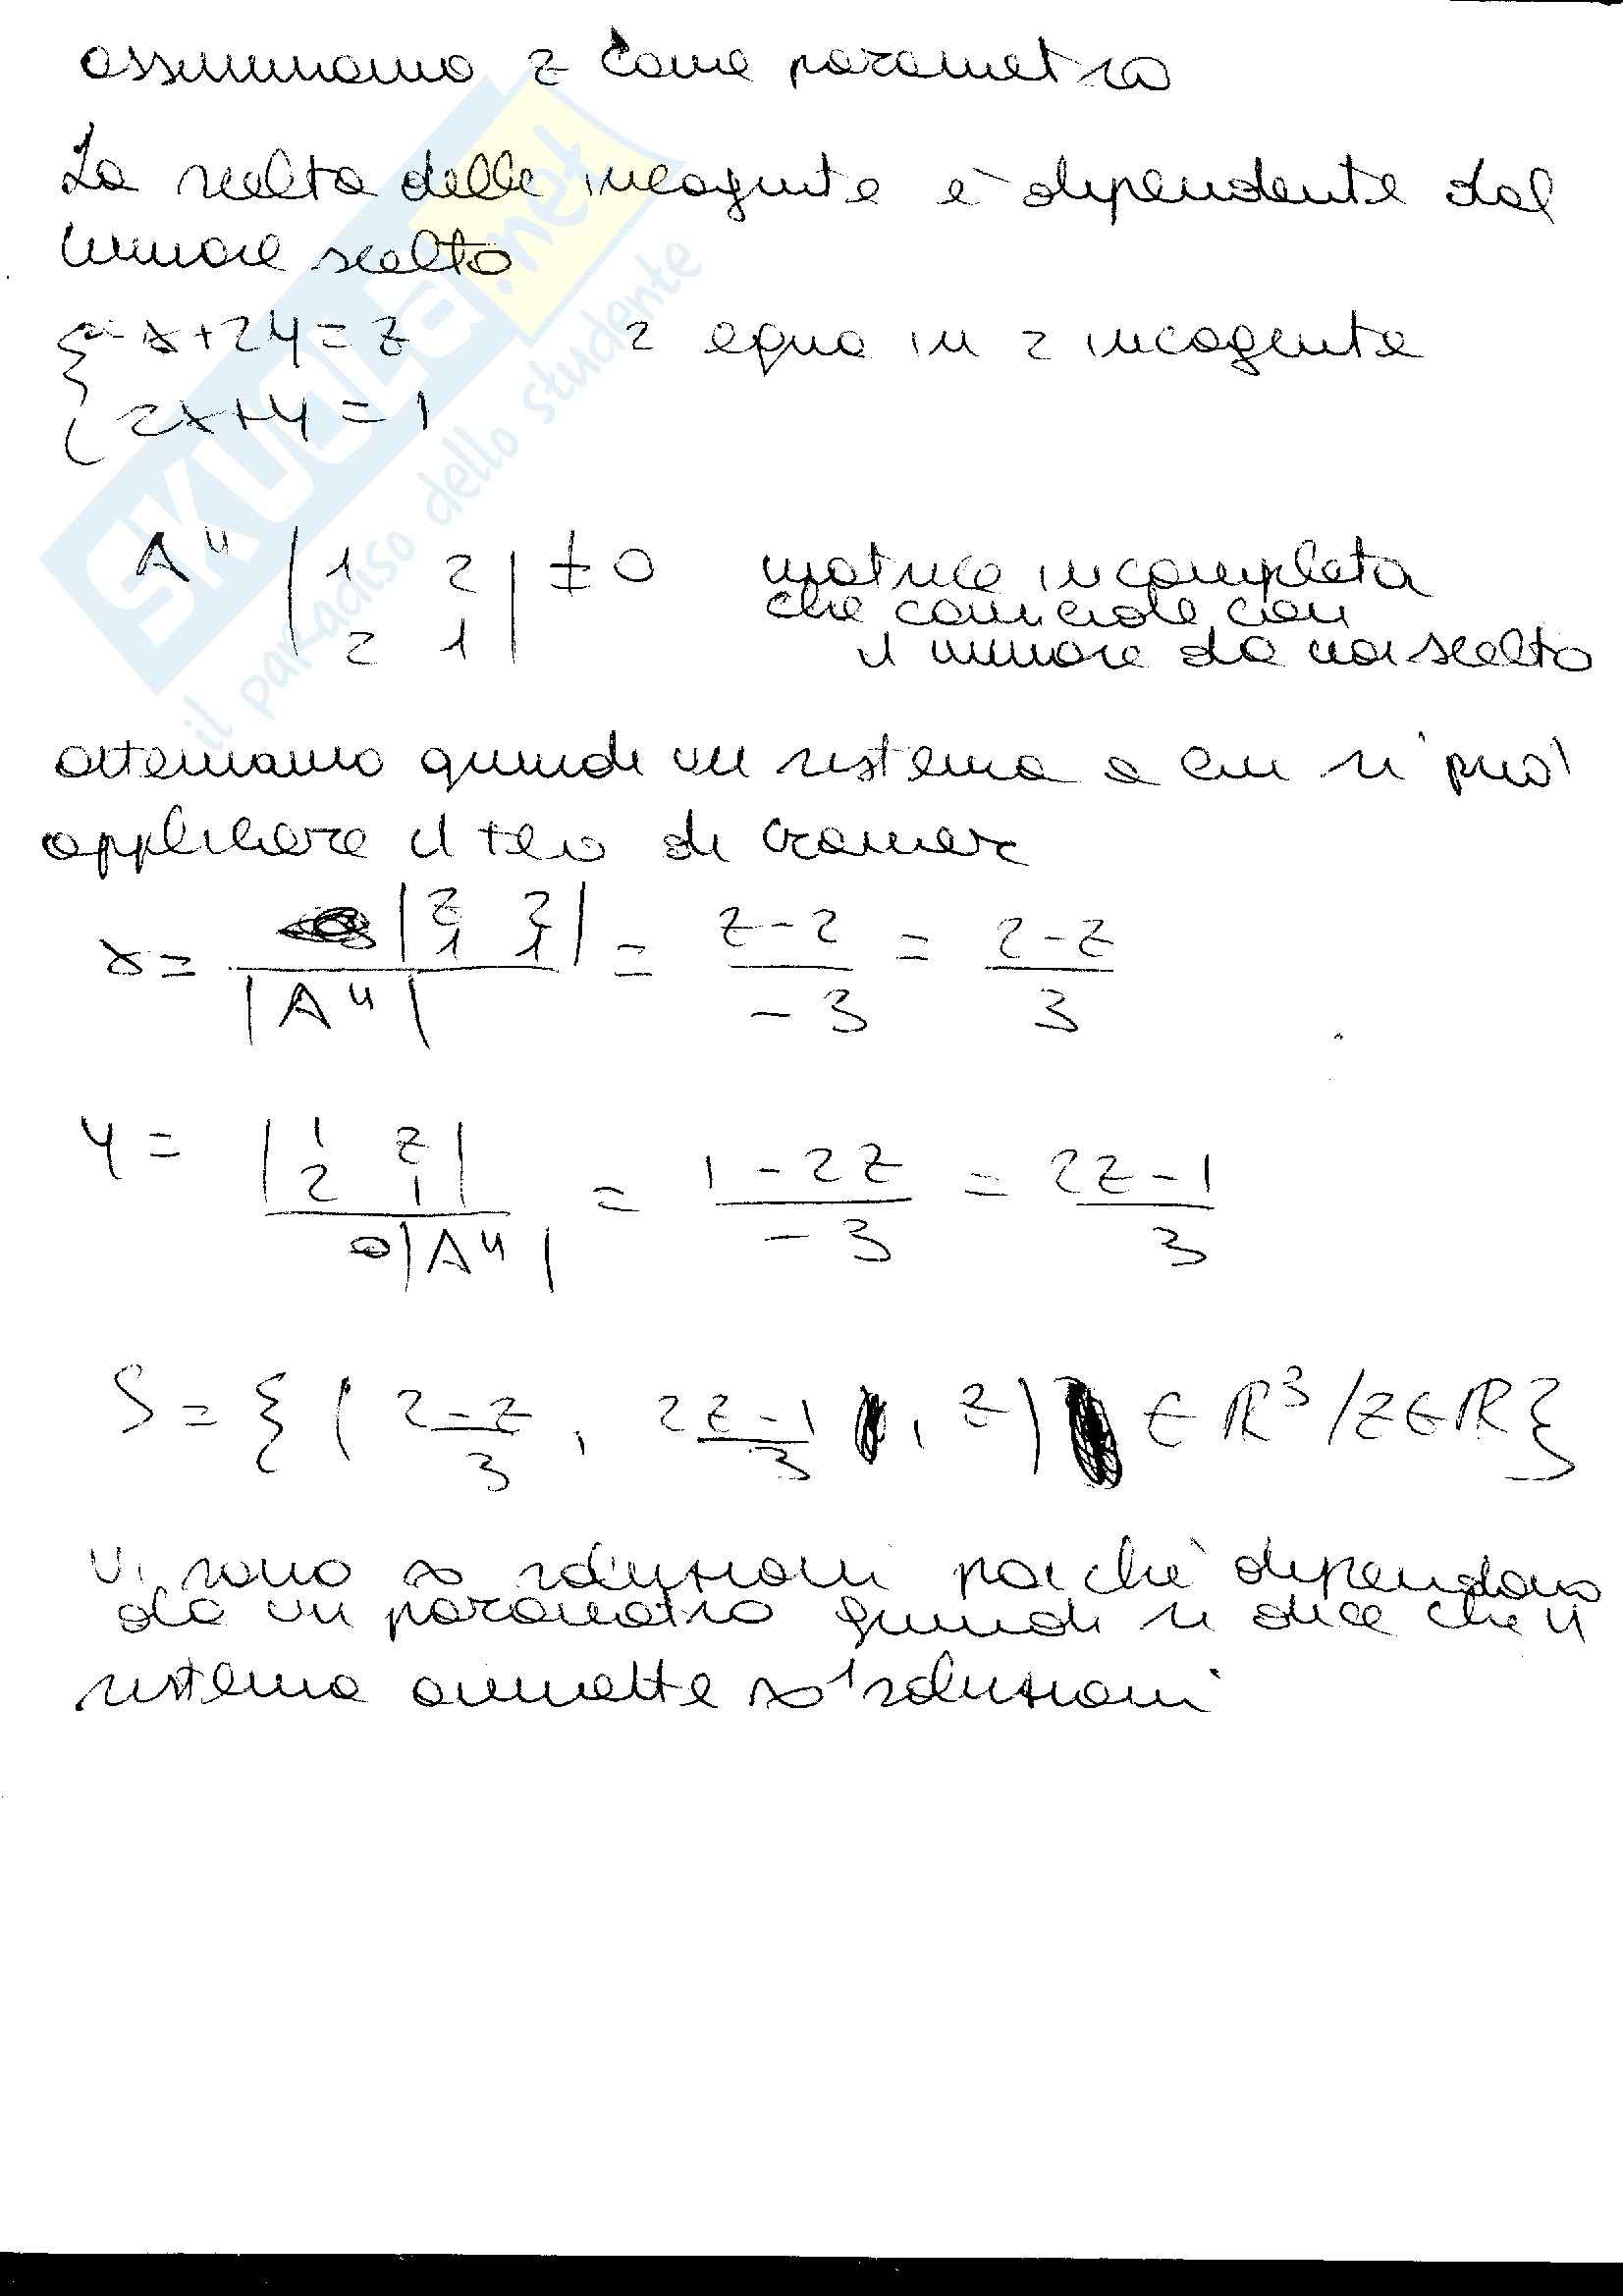 assumiamo z come parametro
La scelta delle incognite è dipendente dal
minore scelto
{ x+2y=z 2 equa in 2 incognite
2x+y=1
A'' |1 2| ≠0 matrice incompleta
che coincide con
|2 1| il minore da noi scelto
otteniamo quindi un sistema a cui si può
applicare il teo di Cramer
x= |z 2| = z-2 = 2-z
|1 1|
|A''| -3 3
y= |1 z| = 1-2z = 2z-1
|2 1|
|A''| -3 3
S={(2-z , 2z-1 , z) ∈ ℝ³/z∈ℝ}
3 3
Vi sono ∞ soluzioni poichè dipendono
da un parametro quindi si dice che il
sistema ammette ∞¹ soluzioni
SKUOLA.net
il paradiso dello studente